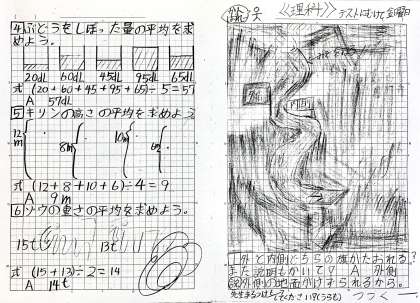 ④ぶどうをしぼった量の平均を求
めよう。
20dL 60dL 45dL 95dL 65dL
式 (20+60+45+95+65)÷5=57
A 57dL
⑤キリンの高さの平均を求めよう
12m 8m 10m 6m
式 (12+8+10+6)÷4=9
A 9m
⑥ゾウの重さの平均を求めよう。
15t 13t
式 (15+13)÷2=14
A 14t
《理科》 テストにむけて
内側
外と内側どちらの旗がたおれる?
また説明もかいて。 A 外側
説 外側の地面がけずられるから。
つづく